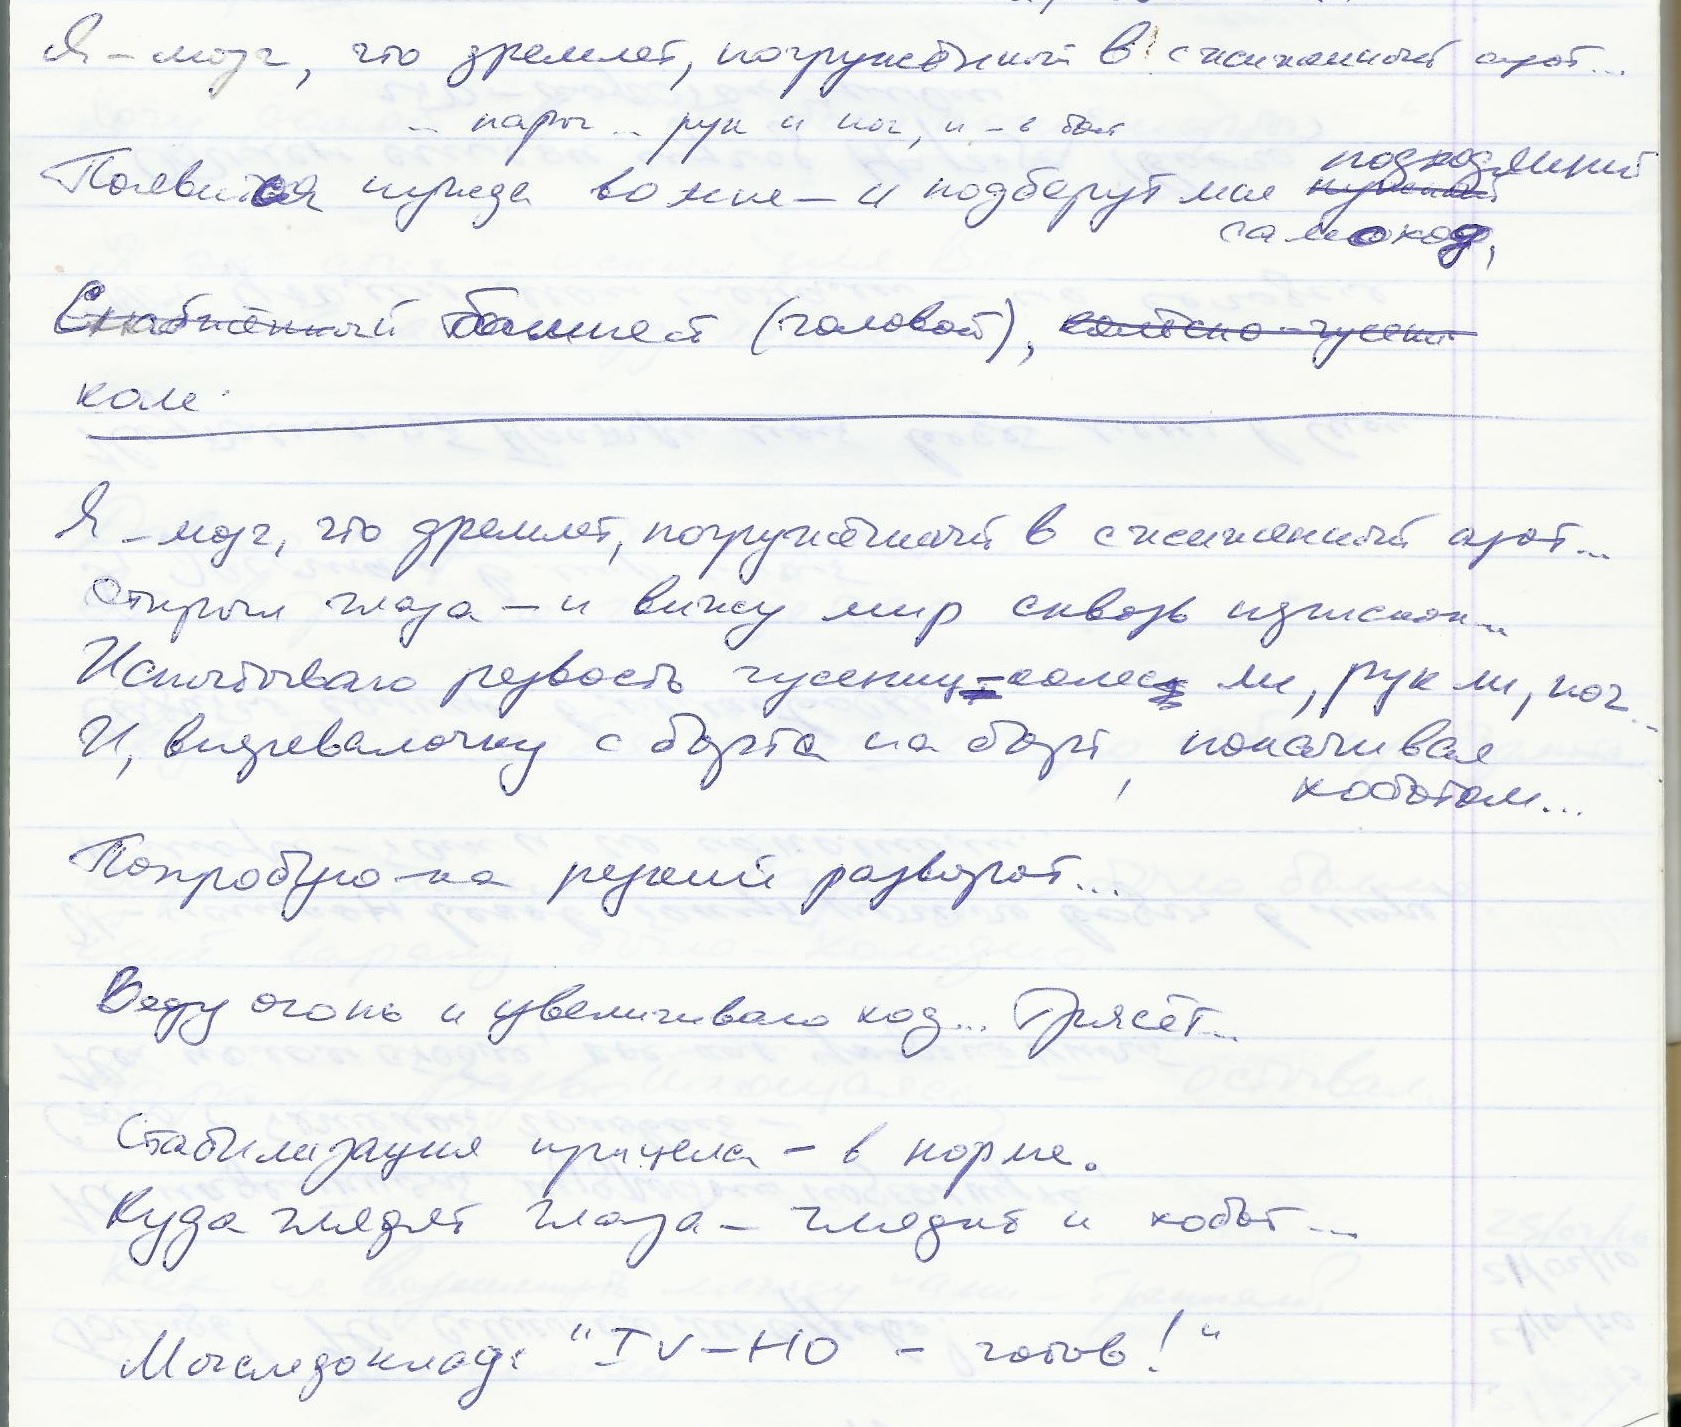 Я – мозг, что дремлет, погружённый в сжиженный азот...
... пары ... рук и ног, и – в бой
подходящий
Появится нужда во мне – и подберут мне нужный
самоход,
Снабжённый башней (головой), колёсно-гусени
ком
Я – мозг, что дремлет, погружённый в сжиженный азот...
Открыл глаза – и вижу мир сквозь
Испытываю резвость гусениц-колес ли, рук ли, ног...
И, вперевалочку с борта на борт, покачивая
хоботом...
Попробую-ка резкий разворот...
Веду огонь и увеличиваю ход... Трясёт...
Стабилизация прицела – в норме.
Куда глядят глаза – глядит и хобот...
Мыследоклад: "IV-НО – готов!"